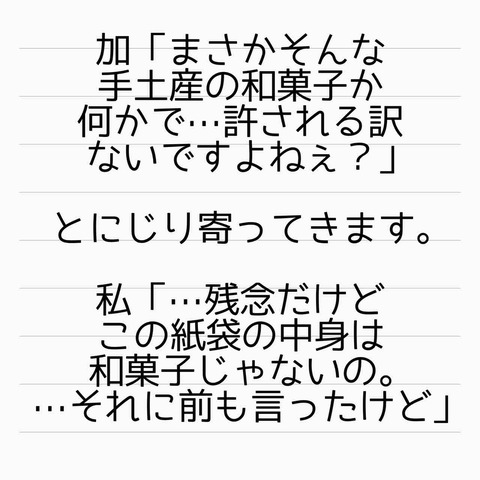 加「まさかそんな
手土産の和菓子か
何かで…許される訳
ないですよねぇ？」
とにじり寄ってきます。
私「…残念だけど
この紙袋の中身は
和菓子じゃないの。
…それに前も言ったけど」